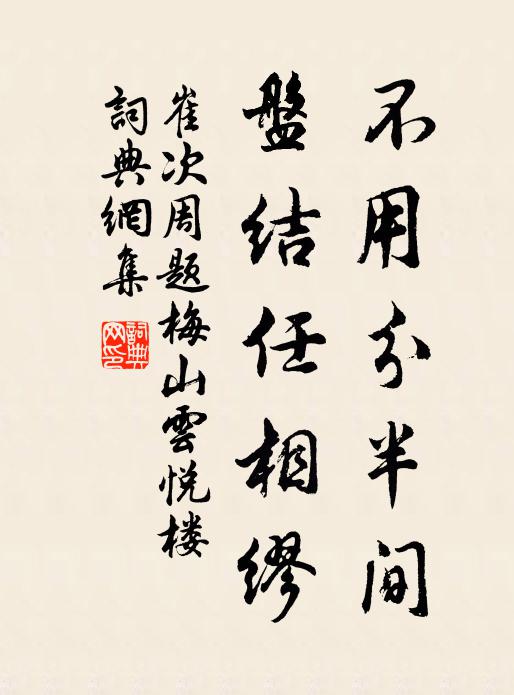 不用分半间
盤结任相繆
崔次周题梅山雲悦楼
詞典網集
詞典网印